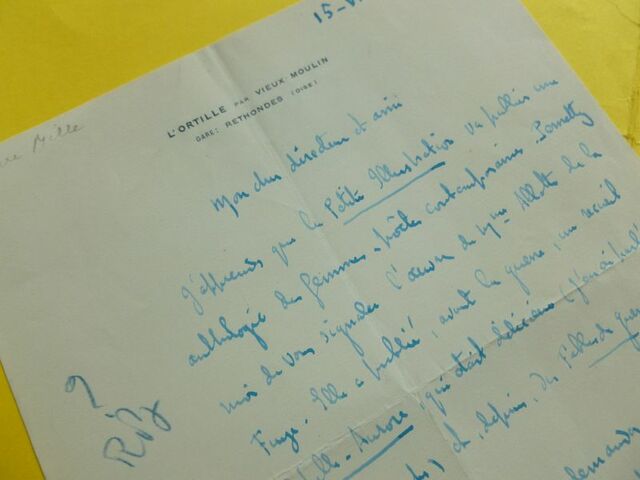 15-V
L'ORTILLE PAR VIEUX-MOULIN
GARE: RETHONDES (OISE)
Mille
Mon cher directeur et ami
J'apprends que la Petite Illustration va publier une
anthologie des femmes-poètes contemporaines. Permettez
moi de vous signaler l'œuvre de Mme de la
Elle a publié, avant la guerre, un recueil
Aurore (qui était délicieux
et, depuis, des
?